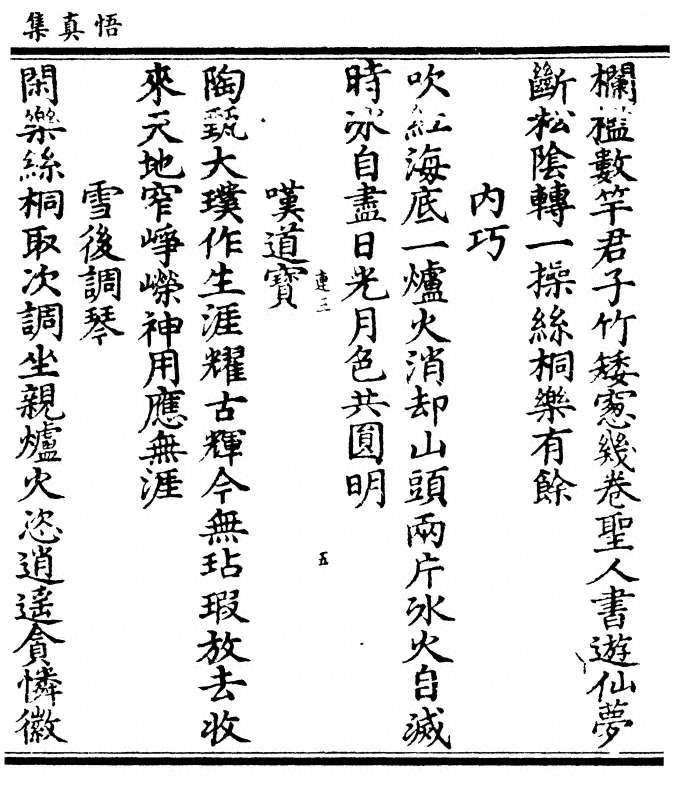 悟真集
欄檻數竿君子竹矮窓幾卷聖人書遊仙夢
斷松陰轉一操絲桐樂有餘
内巧
吹紅海底一爐火消却山頭兩片氷火自滅
時氷自盡日光月色共圓明
連三
五
嘆道寶
陶甄大璞作生涯耀古輝今無玷瑕放去收
來天地窄崢嶸神用應無涯
雪後調琴
閑樂絲桐取次調坐親爐火恣逍遥貪憐徽